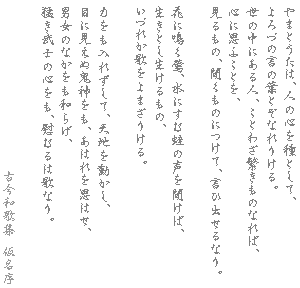 やまとうたは、人の心を種として、
よろづの言の葉とぞなれりける。
世の中にある人、ことわざ繁きものなれば、
心に思ふことを、
見るもの、聞くものにつけて、言ひ出せるなり。
花に鳴く鶯、水にすむ蛙の声を聞けば、
生きとし生けるもの、
いづれか歌をよまざりける。
力をも入れずして、天地を動かし、
目に見えぬ鬼神をも、あはれと思はせ、
男女のなかをも和らげ、
猛き武士の心をも、慰むるは歌なり。
古今和歌集 仮名序